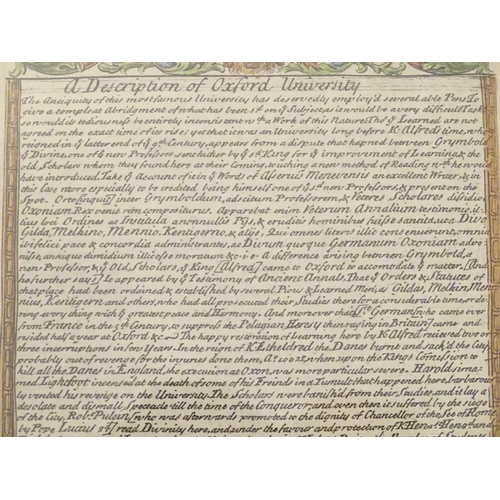 A Description of Oxford University
The Antiquity of this most famous University has deservedly employ'd several able Pens To
give a compleat Abridgment of what has been sd. on ye Subject as it would be a very difficult Task
so would it tedious & be entirely inconsistent wth. a Work of this Nature The Learned are not
agreed on the exact time of its rise; yet that it was an University long before K. Alfred time, who
reigned in ye latter end of ye 9th Century, appears from a dispute that hapned between Grymbold
ye Divine, one of ye new Professors sent hither by ye sd. King for ye improvement of Learning, & the
old Scholars whom they found here at their Coming, which a new method of Reading wch. he wou'd
have introduced. Take ye Account of it in ye Words of Aserius Menevensis an excellent Writer, & in
this Case more especially to be credited being himself one of ye sd. new Professors, & present on the
Spot. Orto Sinquit inter Grymboldum, adscitum Professorem, & Veteres Scholares dissidio
Oxoniam Rex venis rem compositurus. Apparebat enim Veterum Annalium testimonio, it
tius Loci Ordines ac Instituta a nonnullis Pijs, & eruditis hominibus fuisse sancita, ut a
Gilda, Melkino, Mennio, Kentigerno, & alijs, Qui omnes literis illic consenuerant, omnia
ibi felici pace & concordia administrantes, ac Divum quoque Germanum Oxoniam adve
nisse, annique dimidium illic esse moratum &c i.e. A difference arising between Grymbold, a
new Professor, & ye Old Scholars, ye King [Alfred] came to Oxford to accomodate ye matter. [And
he further says] It appeared by ye Testimony of Ancient Annals, That ye Orders & Statutes of
that place had been ordained & establish'd by several Pious & Learned Men, as Gildas, Melkin, Men
nius, Kentigern and others, who had all prosecuted their Studies there for a considerable time, or de
ring every thing with ye greatest peace and Harmony. And moreover that St. German [who came over
from France in the 5th Century, to suppress the Pelagian Heresy then raging in Britain] came and
resided half a year at Oxford &c.— The happy restoration of Learning here by K. Alfred receiv'd two or
three interruptions in few Years. In the reign of K. Ethelred the Danes burn'd and sack'd the City
probably out of revenge for the injuries done them, Ao. 1002, when, upon the Kings Comission to
kill all the Danes in England, the execution at Oxon, was more particular severe. Harold sirna
med Lightfoot incensed at the death of some of his Freinds in a Tumult that happened here, barbarous
ly vented his revenge on the University. The Scholars were banish'd from their Studies, and it lay a
desolate and dismall Spectacle till the time of the Conqueror, and even then it suffered by the siege
of the City, Robt. Pulleyn, who was afterwards promoted to the dignity of Chancellor of the See of Rome
by Pope Lucius 2d] read Divinity here, and under the favour and protection of K. Hen 1st. Hen 2d. and